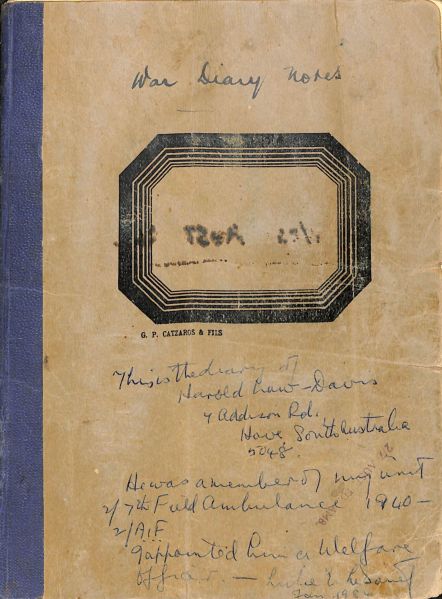 War Diary Notes
G. P. CATZAROS & FILS
This is the diary of
Harold Law-Davis
7 Addison Rd.,
Hove, South Australia
5048.
He was a member of my unit
2/7th Field Ambulance 1940-
2/AIF
I appointed him as Welfare
Officer. —
Jan 198